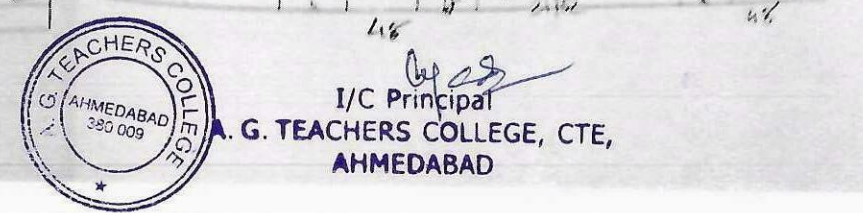 A. G. TEACHERS COLLEGE
AHMEDABAD
380 009
I/C Principal
A. G. TEACHERS COLLEGE, CTE,
AHMEDABAD